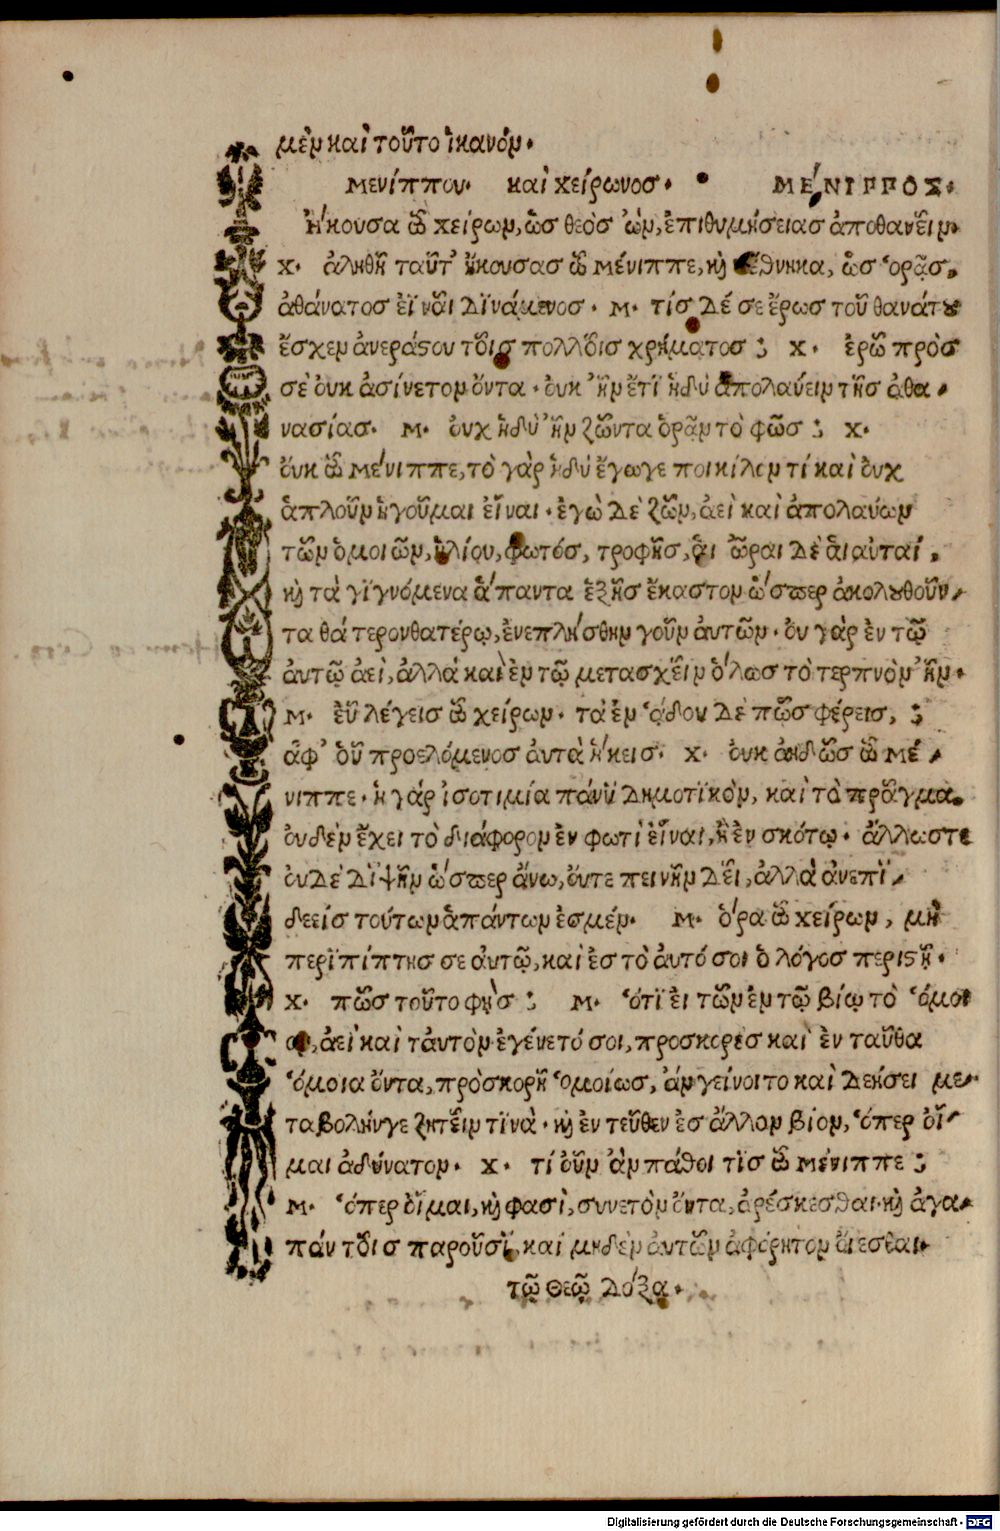 μὲν καὶ τοῦτο ἱκανόν.
Μενίππου. καὶ χείρωνοσ. ΜΕ΄ΝΙΠΠΟΣ.
Η῎κουσα ὦ χείρων, ὡσ θεὸσ ὢν, ἐπιθυμήσειασ ἀποθανεῖν.
Χ. ἀληθῆ ταῦτ' ἤκουσασ ὦ Μένιππε, κỳ τέθνηκα, ὡσ ὁρᾷσ,
ἀθάνατοσ εἶναι δϊνάμενοσ. Μ. τίσ δέ σε ἔρωσ τοῦ θανάτȣ
ἔσχεν ἀνεράϛου τοῖσ πολλοῖσ χρήματοσ ; Χ. ἐρῶ πρὸσ
σὲ ὀυκ ἀσίνετον ὄντα. ὀυκ ἦν ἔτϊ ἡδὺ ἀπολαύειν τῆσ ἀθα,
νασίασ. Μ. ὀυχ ἡδὺ ἦν ζῶντα ὁρᾶν τὸ φῶσ ; Χ.
ὄυκ ὦ Μένιππε, τὸ γὰρ ἡδὺ ἔγωγε ποικίλον τί καὶ ὀυχ
ἁπλοῦν ἡγοῦμαι εἶναι. ἐγὼ δὲ ζῶν, ἀεὶ καὶ ἀπολαύων
τῶν ὁμοιῶν, ἡλίου, φωτόσ, τροφῆσ, ἁι ὧραι δὲ ἁι αὐταί,
κỳ τὰ γϊγνόμενα ἅπαντα ἑξῆσ ἕκαστον ὥσπερ ἀκολȣθοῦν,
τα θάτερονθατέρῳ, ἐνεπλήσθην γοῦν ἀυτῶν. ὀυ γὰρ ἐν τῷ
ἀυτῷ ἀεὶ, ἀλλὰ καὶ ἐν τῷ μετασχεῖν ὅλωσ τὸ τερπνὸν ἦν.
Μ. ἐῦ λέγεισ ὦ χείρων. τὰ ἐν ᾅδου δὲ πῶσ φέρεισ, ;
ἀφ' ὁῦ προελόμενοσ ἀυτὰ ἥκεισ. Χ. ὀυκ ἀηδῶσ ὦ Μέ,
νιππε. ἡ γάρ ἰσοτιμία πάνϋ δημοτϊκὸν, καὶ τὸ πρᾶγμα.
ὀυδὲν ἔχει τὸ διάφορον ἐν φωτὶ εἶναι, ἢ ἐν σκότῳ. ἄλλωστε
ὀυδὲ δϊψῆν ὥσπερ ἄνω, ὄυτε πεινῆν δεῖ, ἀλλὰ ἀνεπϊ,
δεεῖσ τούτων ἁπάντων ἐσμέν. Μ. ὅρα ὦ χείρων, μὴ
περϊπίπτησ σε ἀυτῷ, καὶ ἐσ τὸ ἀυτό σοι ὁ λόγοσ περιϛῇ.
Χ. πῶσ τοῦτο φῄσ ; Μ. ὅτϊ ἐι τῶν ἐν τῷ βίῳ τὸ ὅμοι
ον, ἀεὶ καὶ τἀυτὸν ἐγένετό σοι, προσκορὲσ καὶ ἐν ταῦθα
ὅμοια ὄντα, πρὸσκορῆ ὁμοίωσ, ἂν γείνοιτο καὶ δεήσει με,
ταβολήνγε ζητεῖν τϊνὰ. κỳ ἐν τεῦθεν ἐσ ἄλλον βίον, ὅπερ ὀῖ,
μαι ἀδύνατον. Χ. τί ὀῦν ἂν πάθοι τὶσ ὦ Μένιππε ;
Μ. ὅπερ ὀῖμαι, κỳ φασὶ, συνετὸν ὄντα, ἀρέσκεσθαι. κỳ ἀγα,
πάν τοῖσ παροῦσϊ, καί μηδὲν ἀυτῶν ἀφόρητον ὀίεσθαι.
τῷ θεῷ δόξα.
Digitalisierung gefördert durch die Deutsche Forschungsgemeinschaft - DFG